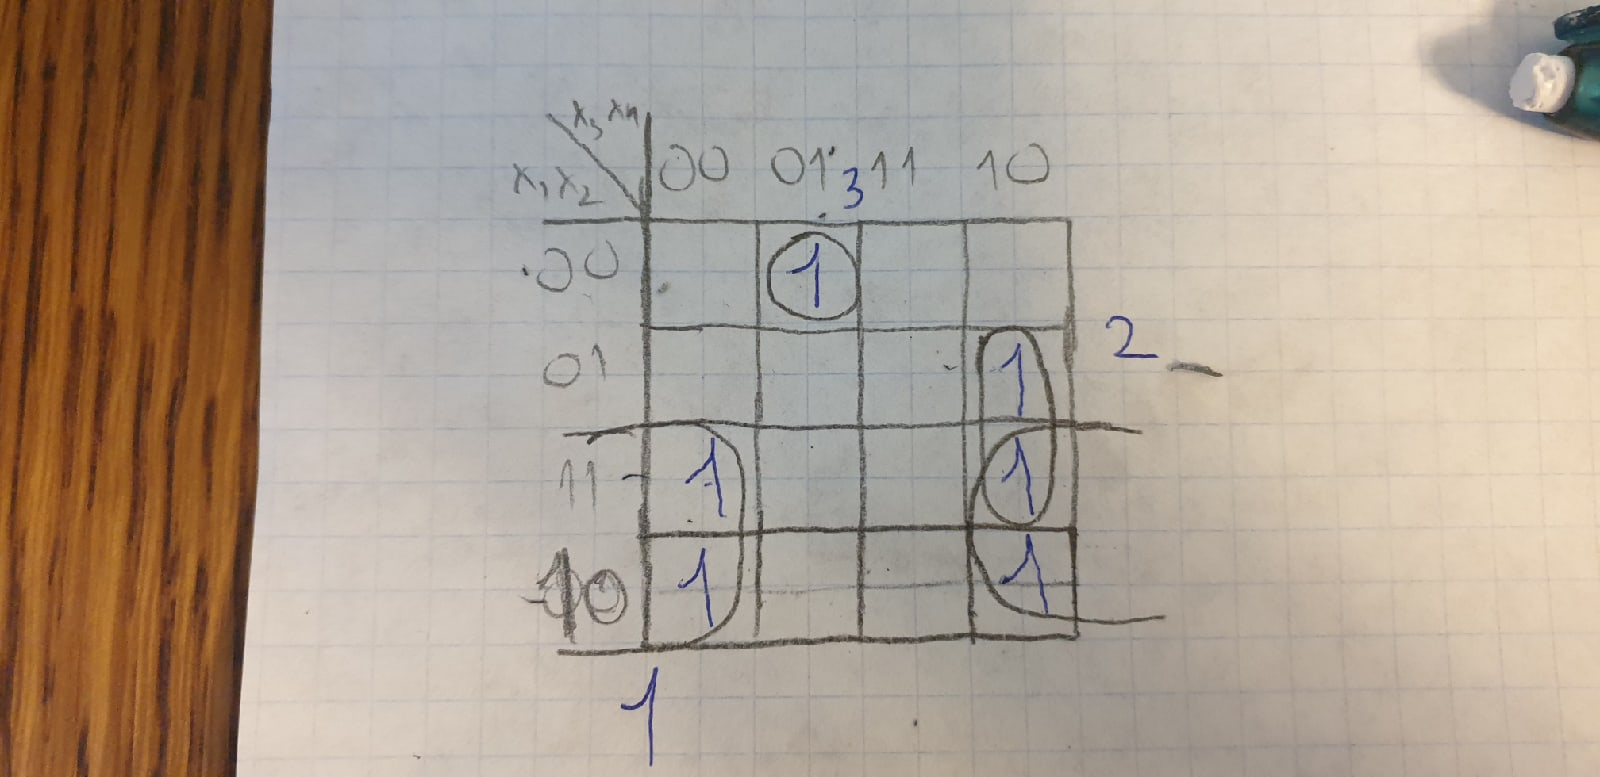 x₃ x₄
x₁ x₂ 00 01 3 11 10
00 1
01 1 2
11 1 1
10 1 1
1